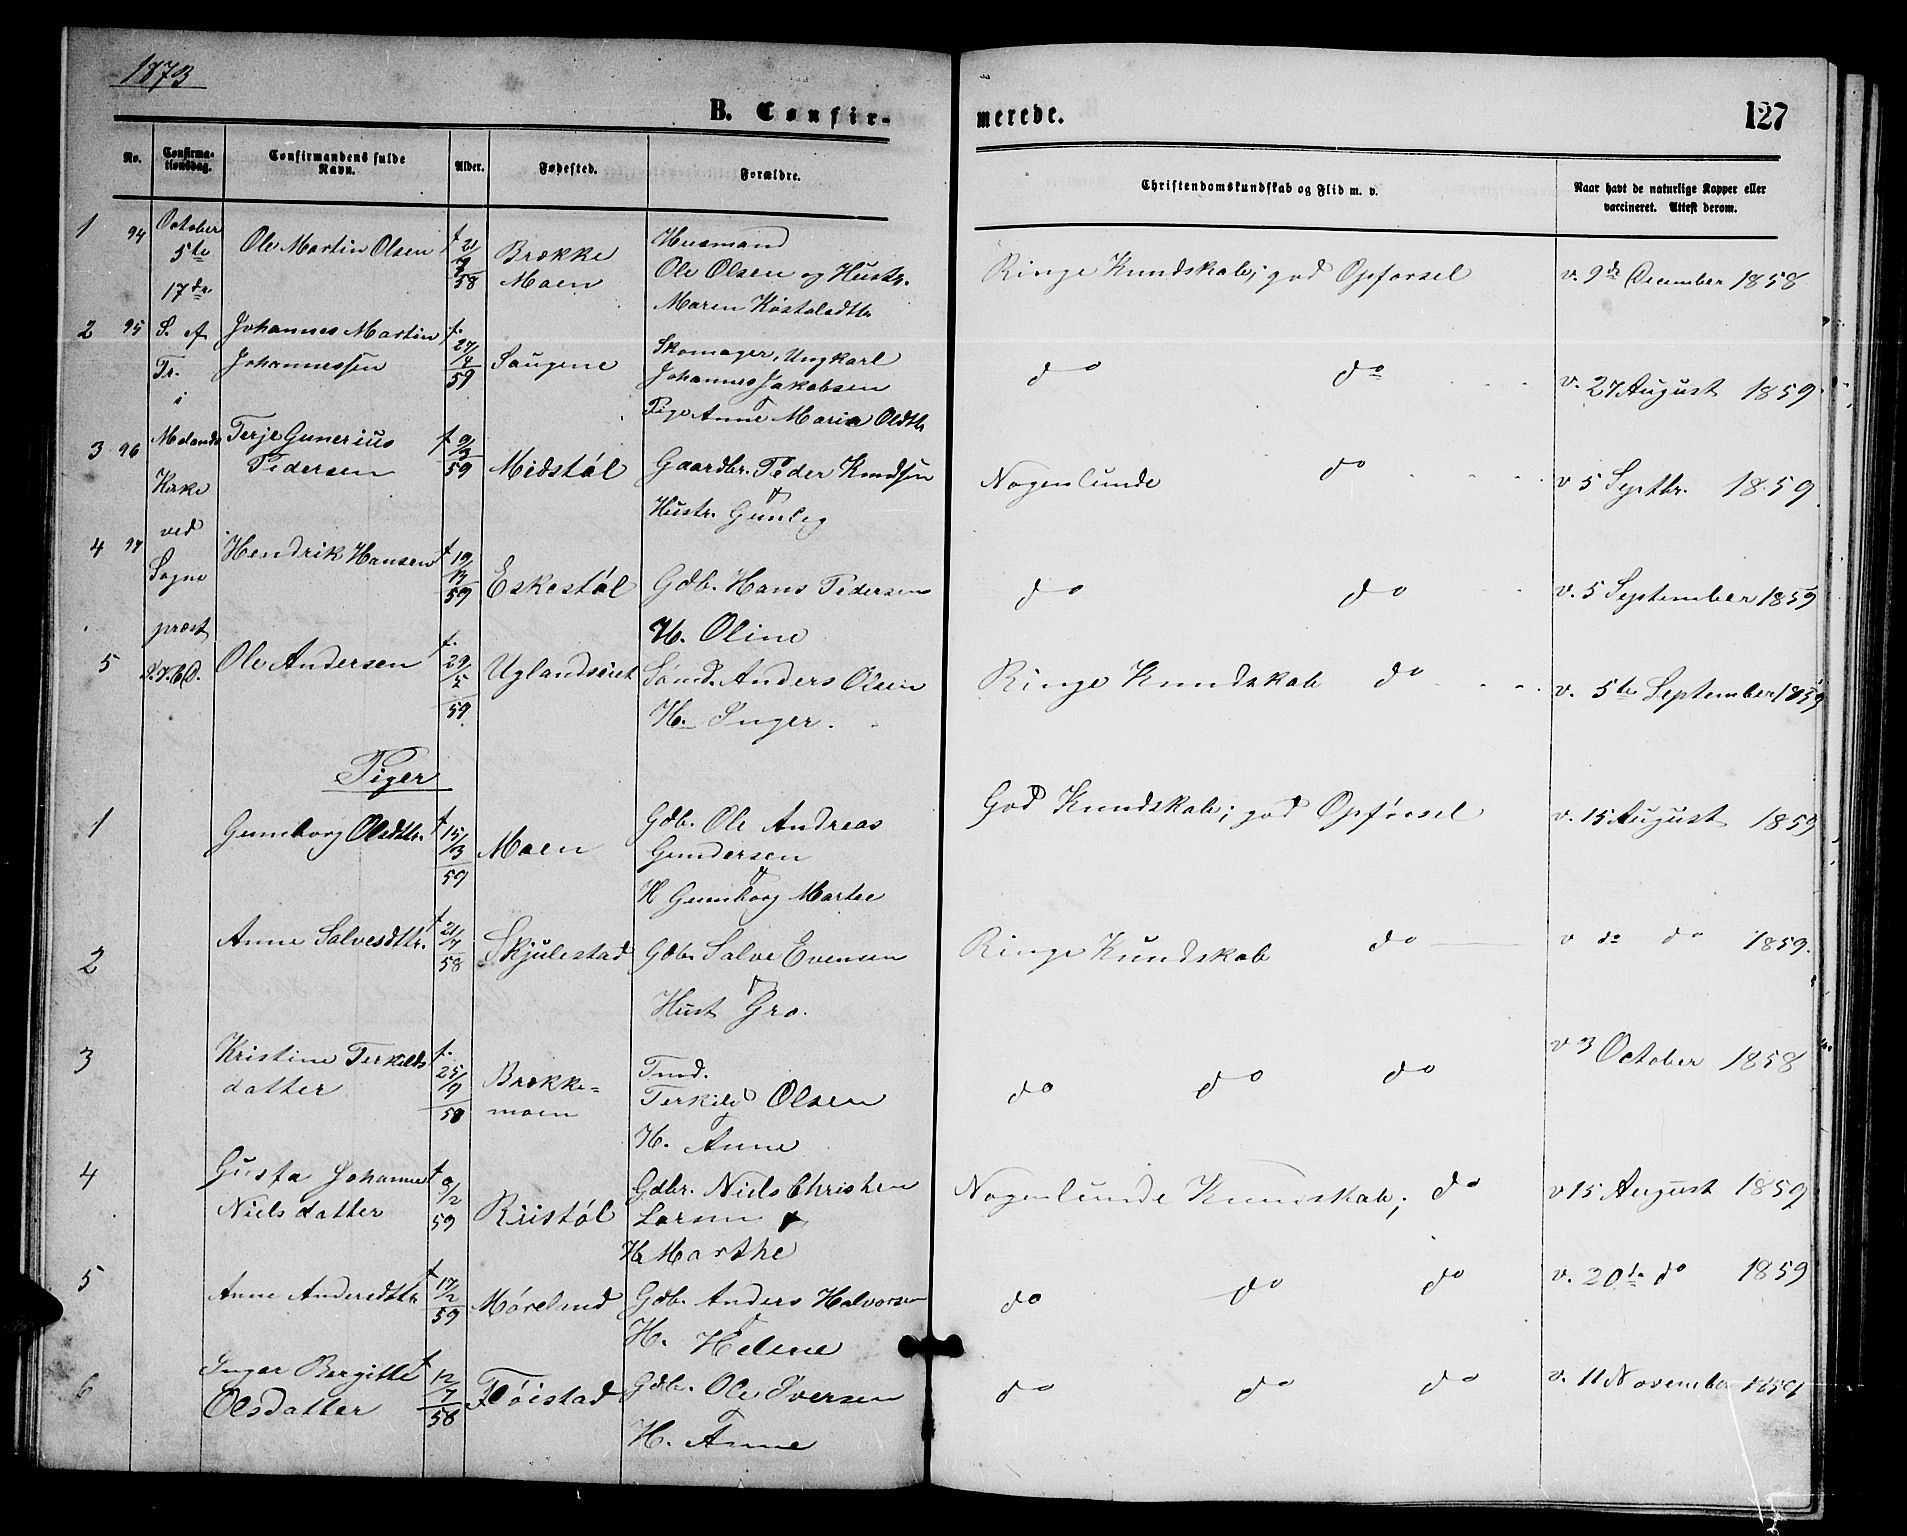 1873
B. Confir-
merede.
127
No.
Confirma-
tionsdag.
Confirmandens fulde
Navn.
Alder.
Fødested.
Forældre.
Christendomskundskab og Flid m. v.
Naar havt de naturlige Kopper eller
vaccineret. Attest derom.
October
5te
17de
S. ef
Tr.
i
Molands
Kirke
ved
Sogne
præst
1 94 Ole Martin Olsen f 21/9 58 Brække Moen
Husmand
Ole Olsen og Hustr.
Maren
Ringe Kundskab; god Opførsel
v. 9de December 1858
2 95 Johannes Martin
Johannessen
f. 27/4 59 Saugene
Skomager, Ungkarl
Johannes Jakobsen
Pige Anne Maria Olsdtr
do do
v. 27 August 1859
3 96 Terje Gunerius
Pedersen
f 9/3 59 Midstøl
Gaardbr. Peder Knudsen
Hustr. Gunleg
Nogenlunde do
v 5 Septbr. 1859
4 97 Hendrik Hansen f 59 Eskestøl
Gdb. Hans Pedersen
H. Oline
do do
v. 5 September 1859
5 Ole Andersen f. 29/5 59
Anders Olsen
H. Inger.
Ringe Kundskab do
v. 5te September 1859
Piger
1 Gunnborg Olsdtr. f 15/3 59 Moen
Gdb. Ole Andreas
Gundersen
H Gunnborg Marthe
God Kundskab; god Opførsel
v. 15 August 1859
2 Anne Salvesdttr. f 21/7 58 Skjulestad
Gdb. Salve Evensen
Hust Gro.
Ringe Kundskab do
v do do 1859.
3 Kristine Terkilds
datter
f. 25/9 58 Brække=
moen
Tmd.
Terkild Olsen
H. Anne
do do do
v 3 October 1858
4 Gusta Johanne
Nielsdatter
f 9/2 59 Ristøl
Gdbr. Niels Christen
Larsen
H. Marthe
Nogenlunde Kundskab; do
v 15 August 1859
5 Anne Andersdttr f 17/2 59 Møreland
Gdb. Anders Halvorsen
H. Helene
do do do
v. 20de do 1859
6 Inger Bergitte
Olsdatter
f 12/7 58 Fløistad
Gdb. Ole Iversen
H. Anne
do do do
v. 11 November 1859